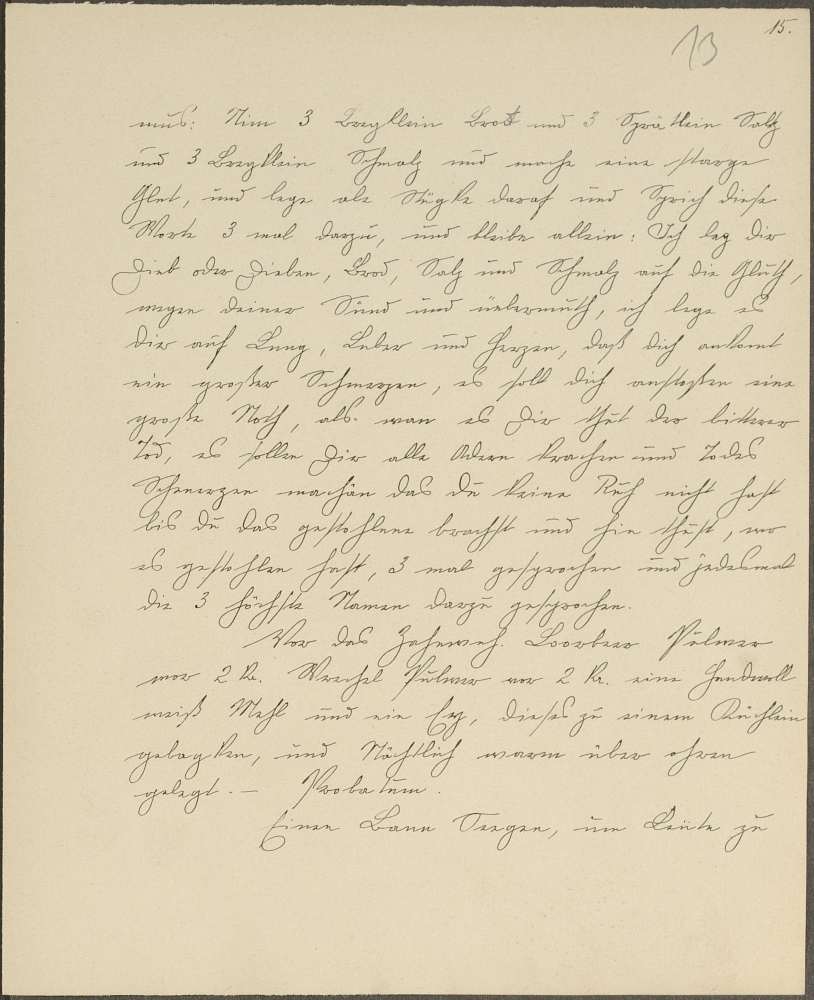 15.
13
mus: Nim 3 Bregklein Brott und 3 Sprätlein Saltz
und 3 Bregklein Schmalz und mache eine starge
Glut, und lege ale Stügke darauf und Sprich diese
Worte 3 mal darzu, und bleibe allein: Ich leg dir
Dieb oder Dieben, Brod, Salz und Schmalz auf die Gluth,
wegen deiner Sünd und übermuth, ich lege es
dir auf Lung, Leber und Herzen, daß dich ankomt
ein großer Schmerzen, es soll dich anstoßen eine
große Noth, als wan es Dir thut der bitterer
Tod, es sollen Dir alle Adern krachen und Todes
Schmerzen machän das du keine Ruh nicht hast
bis du das gestohlene brachst und hin thust, wo
es gestohlen hast, 3 mal gesprochen und jedesmal
die 3 höchste Namen darzu gesprochen.
Vor das Zahnweh. Loorbeer Pulwer
wor 2 Kr. Wechel Pulwer vor 2 Kr. eine Handvoll
weiß Mehl und ein Ey, dieses zu einem Küchlein
gebagken, und Nächtlich warm über ohren
gelegt. — Probatum.
Einen Bann Seegen, um Leute zu